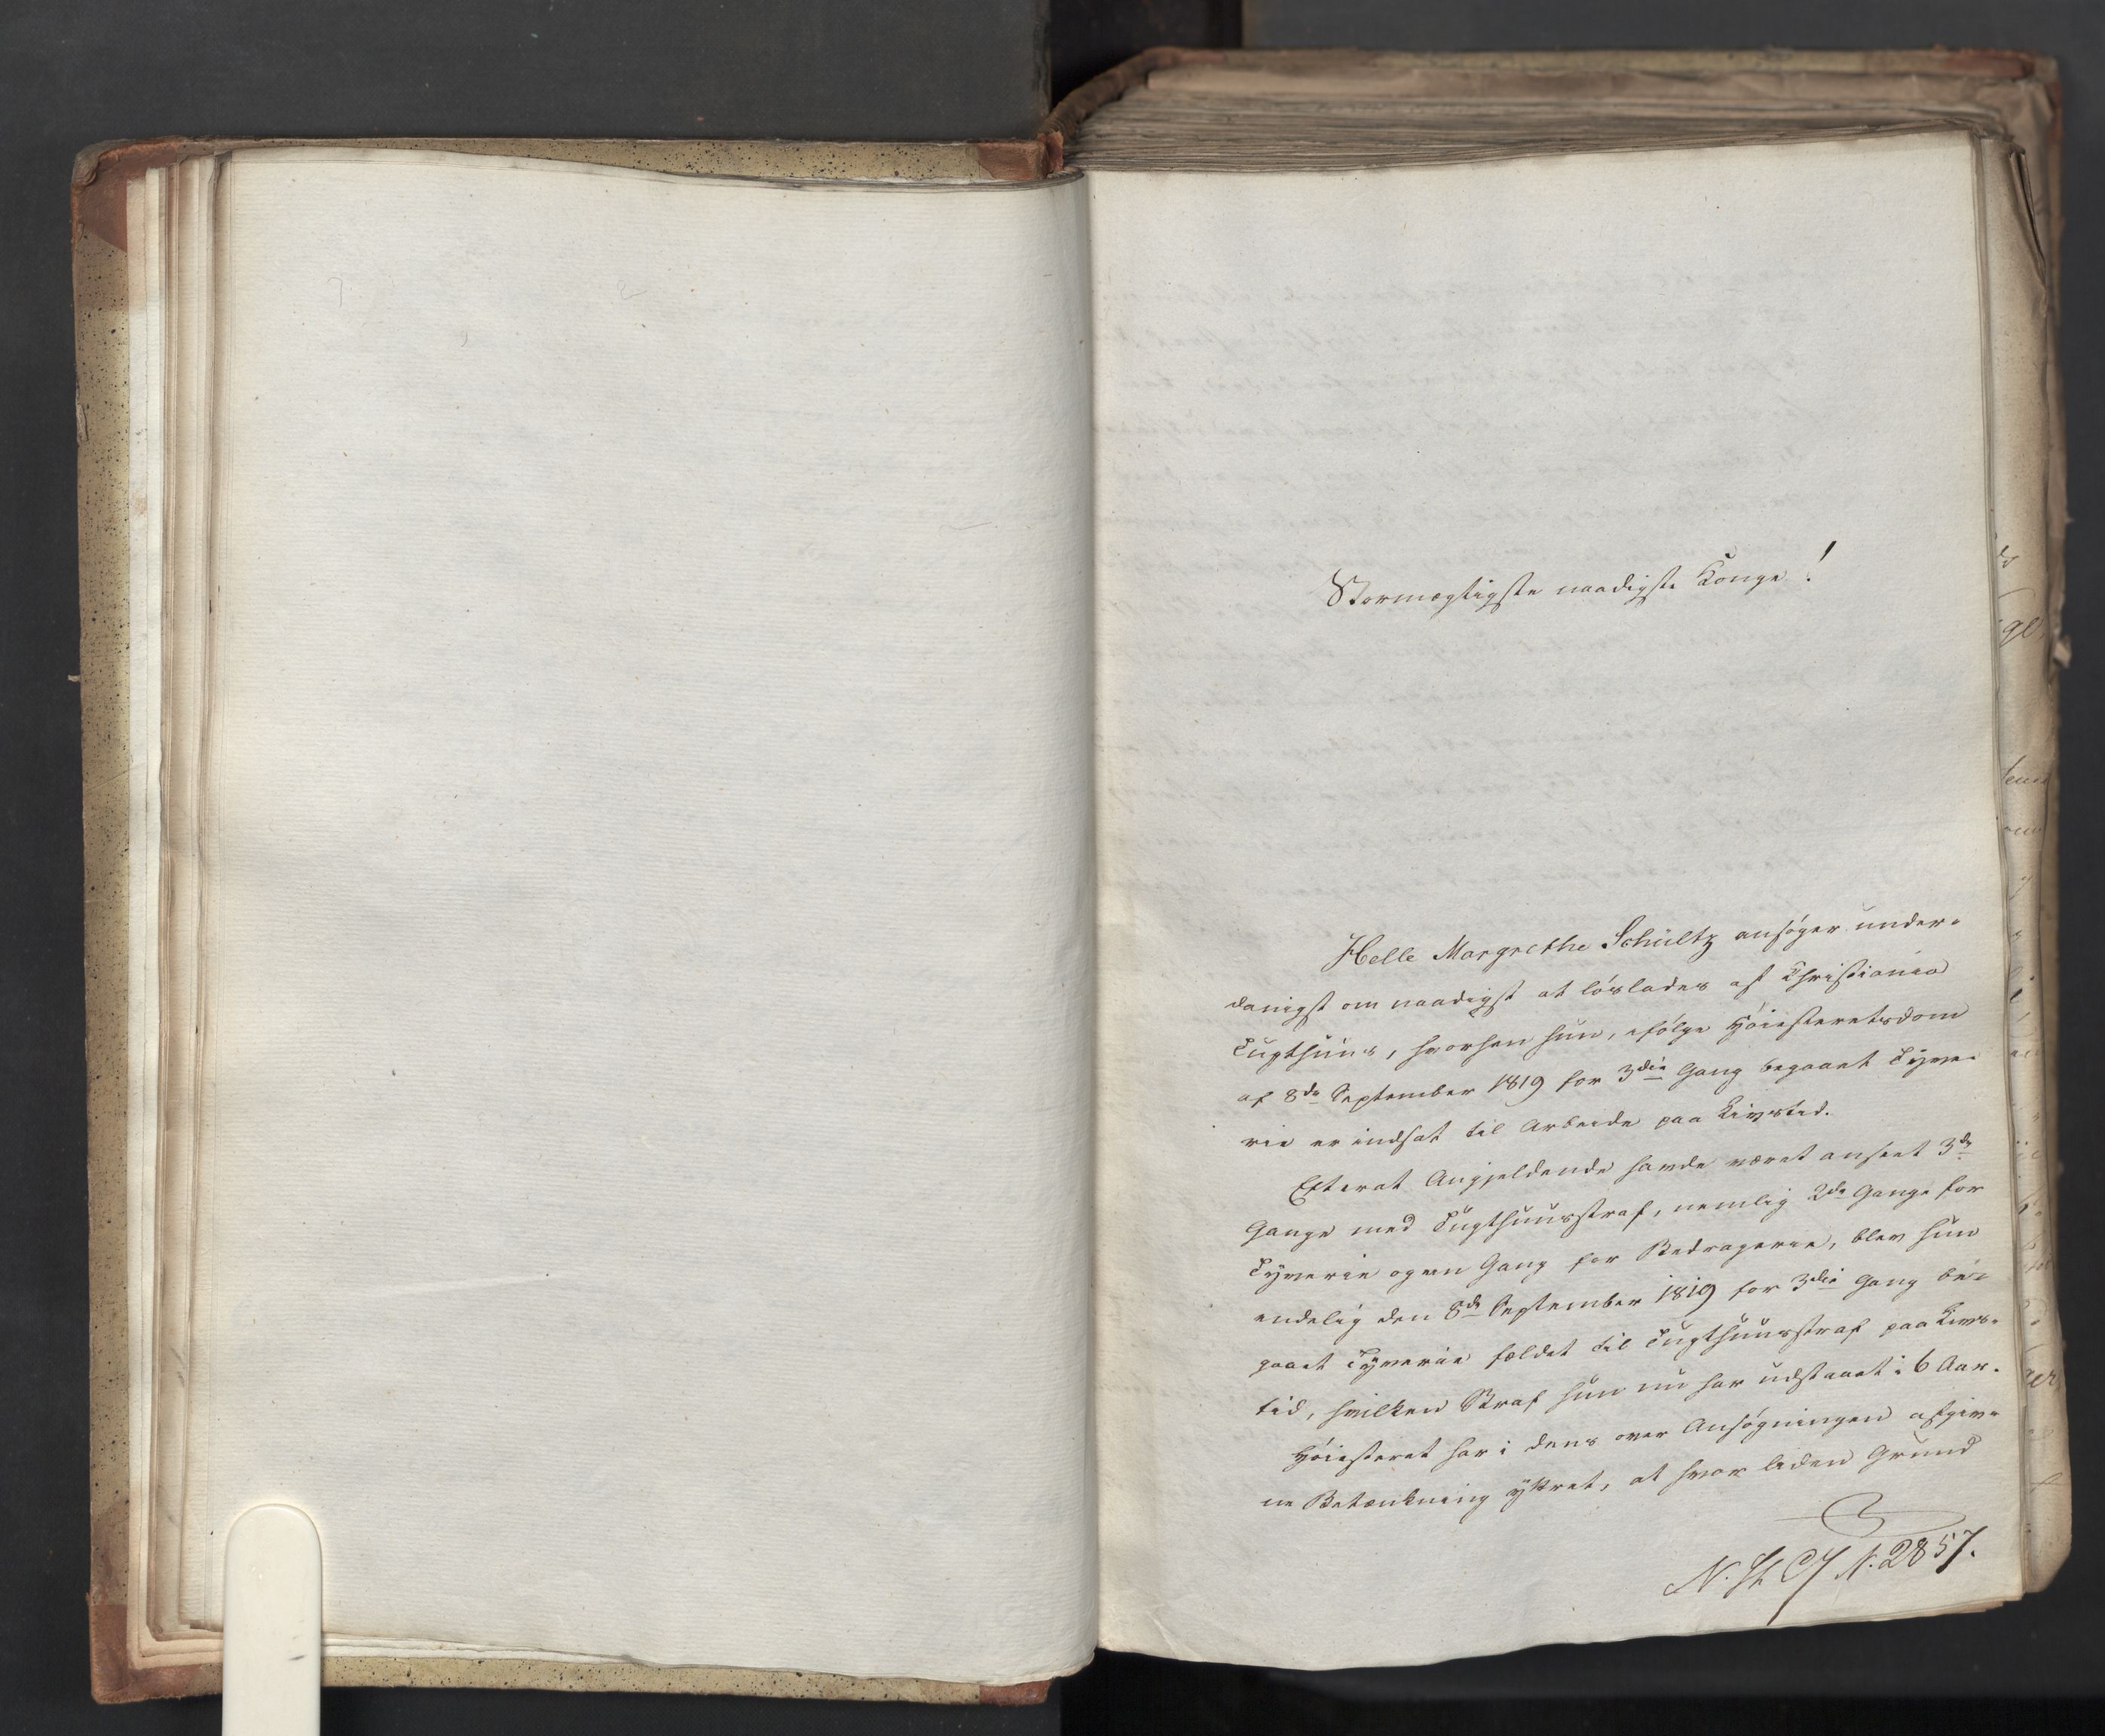 Stormægtigste naadigste Konge!
Helle Margrethe Schültz ansøger under-
danigst om naadigst at løslades af Christiania
Tugthuus, hvorhen hun, ifølge Høiesteretsdom
af 8de September 1819 for 3die Gang begaaet Tyve-
rie er indsat til Arbeide paa Livstid.
Efterat Angjeldende havde været anseet 3de
Gange med Tugthuusstraf, nemlig 2de Gange for
Tyverie og een Gang for Bedragerie, blev hun
endelig den 8de September 1819 for 3die Gang be-
gaaet Tyverie fældet til Tugthuusstraf paa Livs-
tid, hvilken Straf hun nu har udstaaet i 6 Aar.
Høiesteret har i dens over Ansøgningen afgiv-
ne Betænkning yttret, at hvor liden Grund
N. 2857.